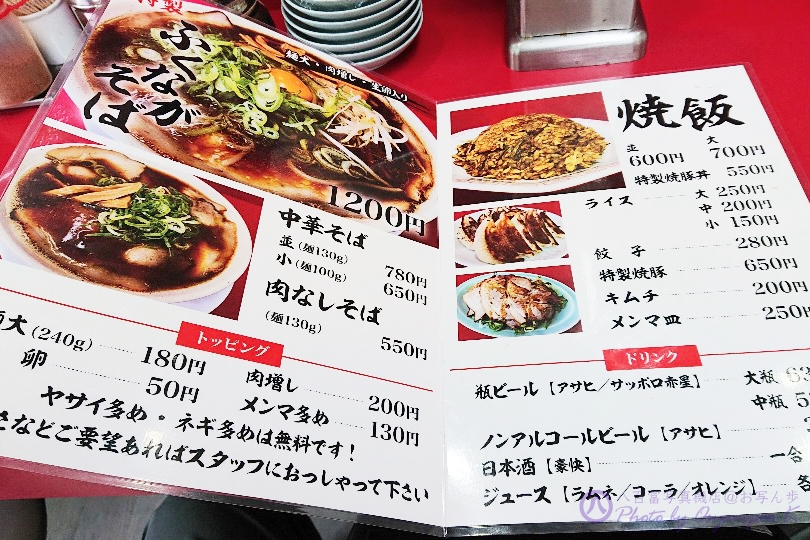 特製
ふくながそば
麺大・肉増し・生卵入り
1200円
中華そば
並(麺130g) 780円
小(麺100g) 650円
肉なしそば
(麺130g) 550円
トッピング
大(240g) 180円
卵 50円
肉増し 200円
メンマ多め 130円
ヤサイ多め・ネギ多めは無料です!
などご要望あればスタッフにおっしゃって下さい
焼飯
並 600円 大 700円
特製焼豚丼 550円
ライス 大 250円
中 200円
小 150円
餃子 280円
特製焼豚 650円
キムチ 200円
メンマ皿 250円
ドリンク
瓶ビール【アサヒ/サッポロ赤星】 大瓶
中瓶
ノンアルコールビール【アサヒ】
日本酒【豪快】 一合
ジュース【ラムネ/コーラ/オレンジ】 各
八 @お写ん歩
Photo by